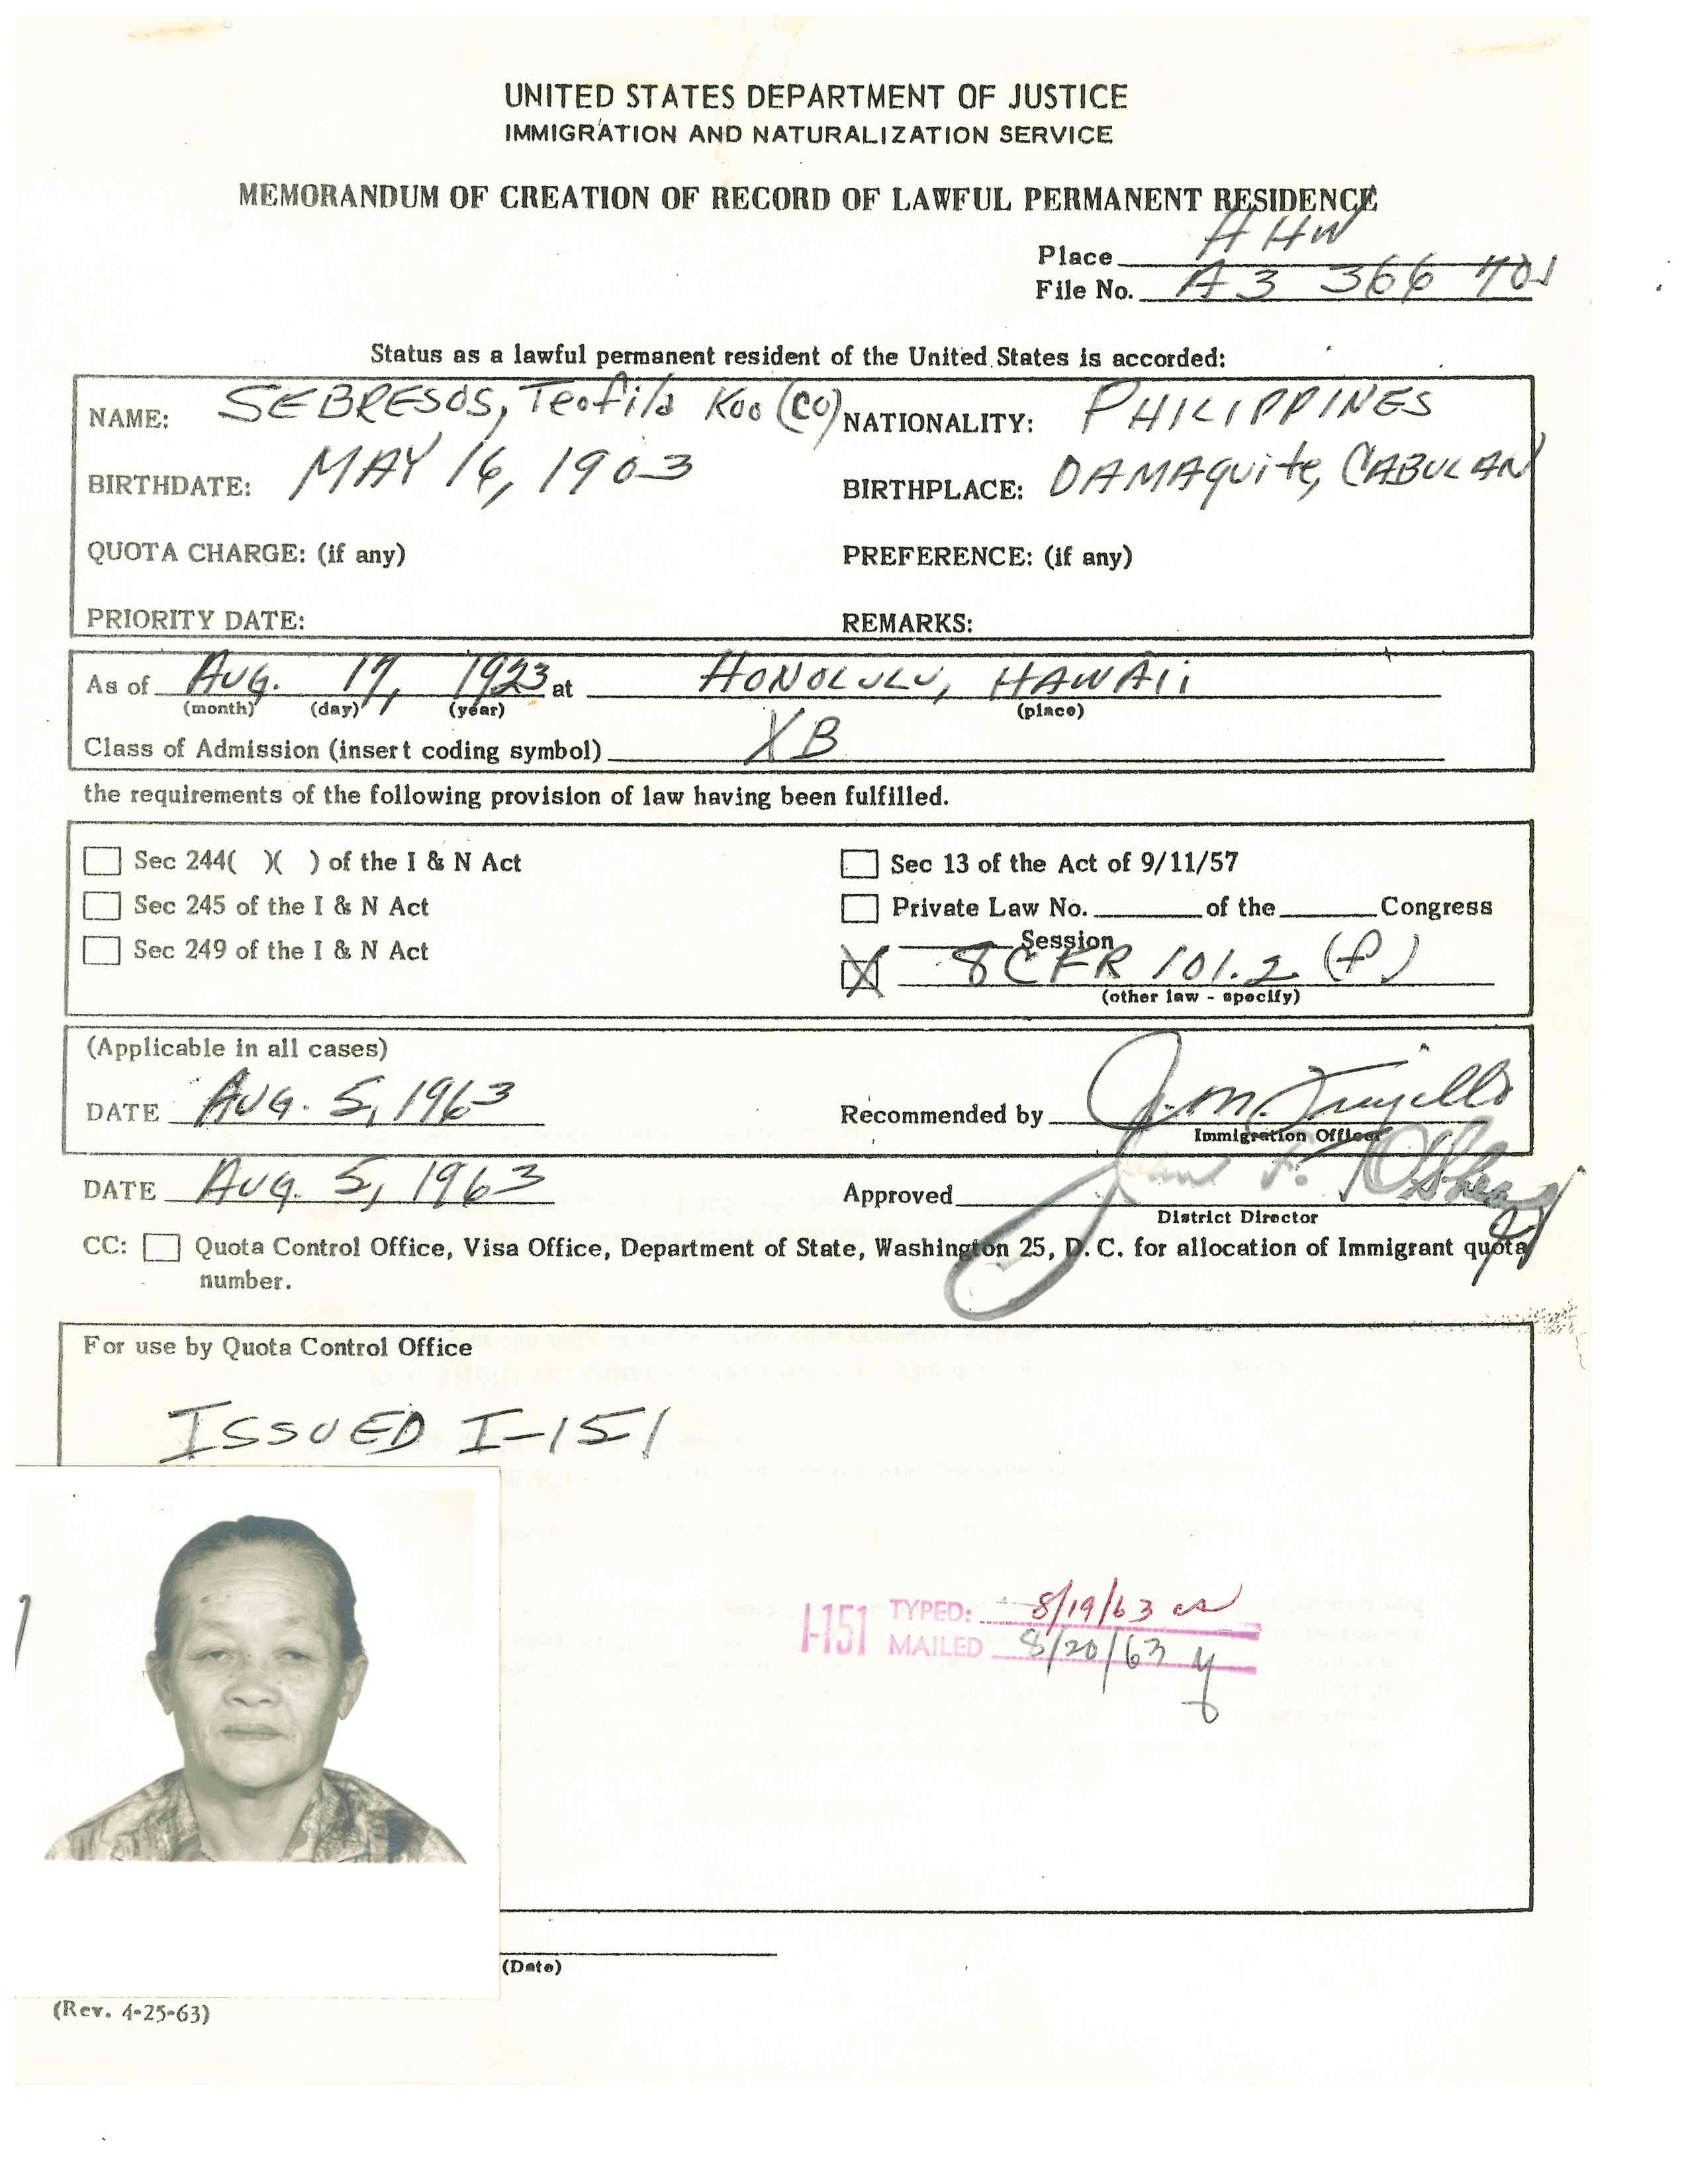 UNITED STATES DEPARTMENT OF JUSTICE
IMMIGRATION AND NATURALIZATION SERVICE
MEMORANDUM OF CREATION OF RECORD OF LAWFUL PERMANENT RESIDENCE
Place HHW
File No. A3 366 701
Status as a lawful permanent resident of the United States is accorded:
NAME: SEBRESOS, Teofila Koo (CO) NATIONALITY: PHILIPPINES
BIRTHDATE: MAY 16, 1903 BIRTHPLACE: DAMAQuite, CABULAN
QUOTA CHARGE: (if any) PREFERENCE: (if any)
PRIORITY DATE: REMARKS:
As of AUG. 17, 1923 at HONOLULU, HAWAii
(month) (day) (year) (place)
Class of Admission (insert coding symbol) XB
the requirements of the following provision of law having been fulfilled.
Sec 244( )( ) of the I & N Act Sec 13 of the Act of 9/11/57
Sec 245 of the I & N Act Private Law No. of the Congress
Session
Sec 249 of the I & N Act X 8 CFR 101.2 (f)
(other law - specify)
(Applicable in all cases)
DATE AUG. 5, 1963 Recommended by J. M. Trujillo
Immigration Officer
DATE AUG. 5, 1963 Approved John F. O'Shea
District Director
CC: Quota Control Office, Visa Office, Department of State, Washington 25, D. C. for allocation of Immigrant quota
number.
For use by Quota Control Office
ISSUED I-151
I-151 TYPED: 8/19/63
MAILED 8/20/63
(Date)
(Rev. 4-25-63)